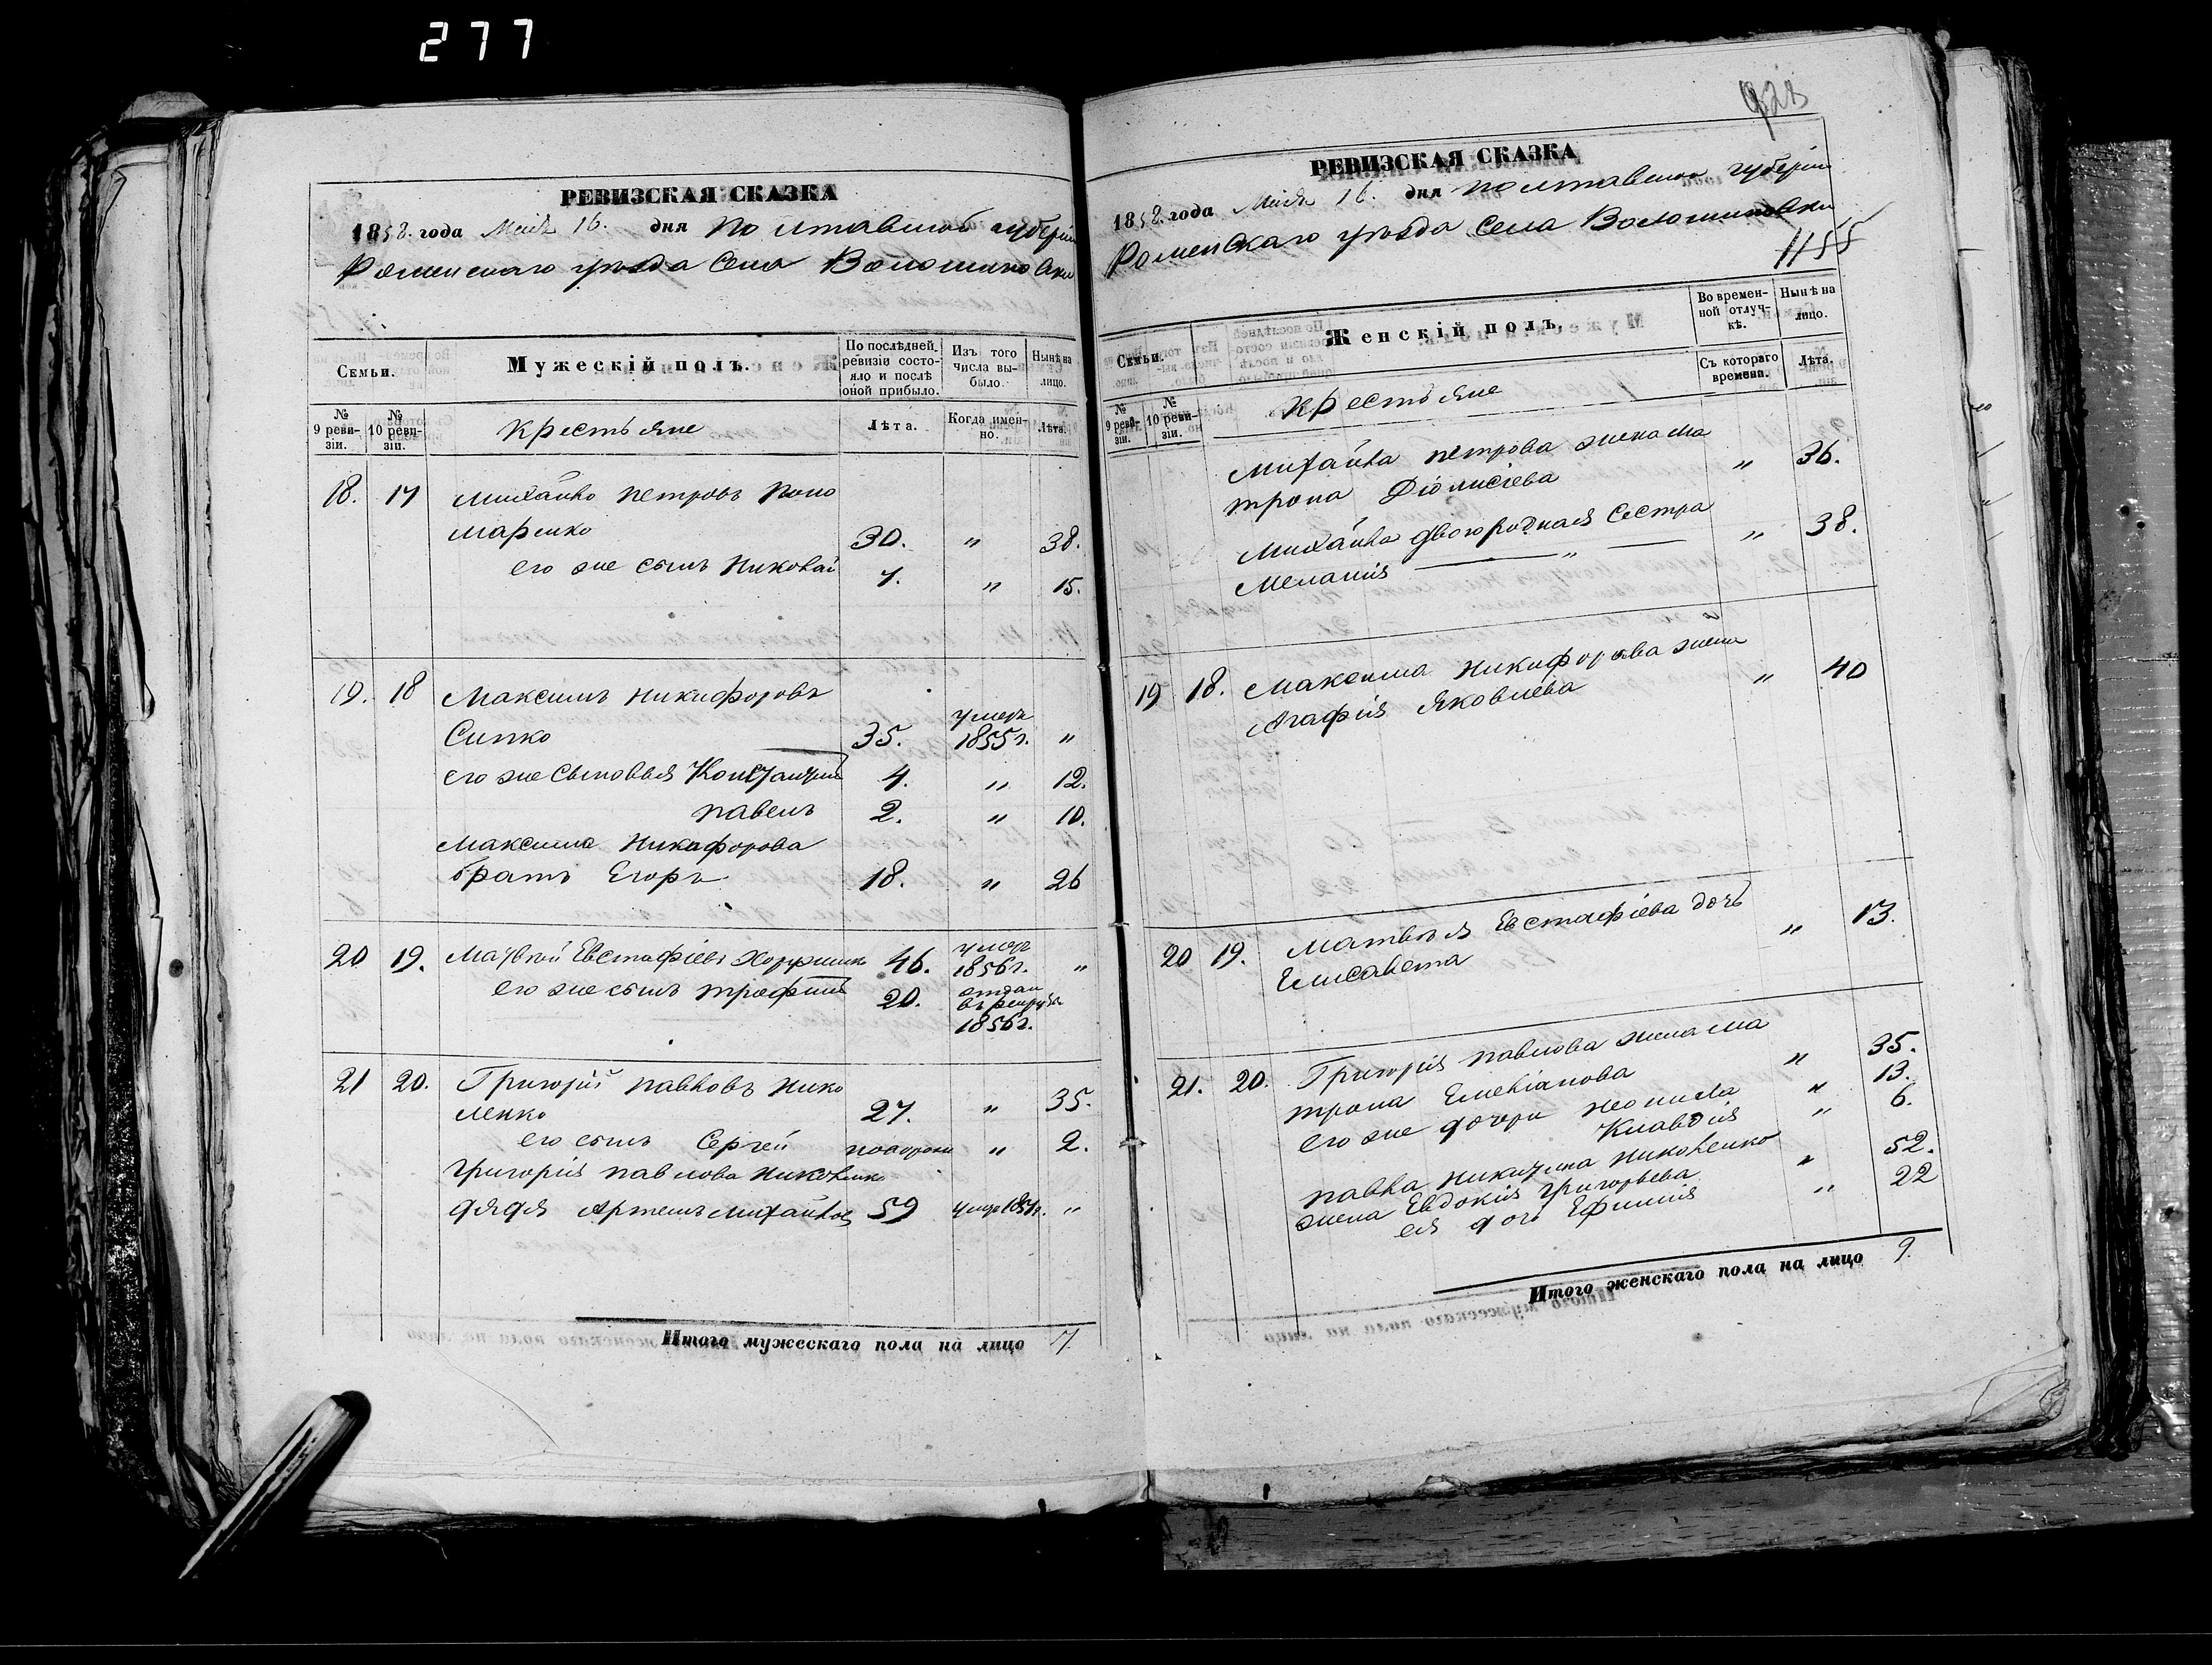 277
РЕВИЗСКАЯ СКАЗКА
1858. года Мая 16. дня Полтавской губерніи
Роменскаго уѣзда Села Волошиновки
Семьи.
Мужескій полъ.
По послѣдней ревизіи состояло и послѣ оной прибыло.
Изъ того числа выбыло.
Нынѣ на лицо.
№ 9 ревизіи.
№ 10 ревизіи.
Крестьяне
Лѣта.
Когда именно.
Лѣта.
18. 17 Михайло Петровъ Поно
маренко 30. " 38.
его же сынъ Николай 7. " 15.
19. 18 Максимъ Никифоровъ
Сипко 35. умеръ 1855 г. "
его же сыновья Константинъ 4. " 12.
Павелъ 2. " 10.
Максима Никифорова
братъ Егоръ 18. " 26
20 19. Матвѣй Евстафіевъ 46. умеръ 1856 г. "
его же сынъ Трофимъ 20. отдан въ рекруты 1856 г.
21 20. Григорій Павловъ Нико
ленко 27. " 35.
его сынъ Сергей новорожд " 2.
Григорія Павлова Николенко
дядя Артемъ Михайлов 59 умеръ 1851 г. "
Итого мужескаго пола на лицо 7.
РЕВИЗСКАЯ СКАЗКА
1858. года Мая 16. дня Полтавской губерніи
Роменскаго уѣзда Села Волошиновки
1155
Семьи.
Женскій полъ.
Во временной отлучкѣ.
Нынѣ на лицо.
№ 9 ревизіи.
№ 10 ревизіи.
Крестьяне
Съ котораго времени.
Лѣта.
Михайла Петрова жена Ма
трона Діонисіева " 36.
Михайла двоюродная сестра
Меланія " " 38.
19 18. Максима Никифорова жена
Агафія Яковлева " 40
20 19. Матвѣя Евстафіева дочь
Елисавета " 13.
21. 20. Григорія Павлова жена Ма
трона Емеліанова " 35.
его же дочери Неонила " 13.
Клавдія " 6.
Павла Никитина Николенко
жена Евдокія Григорьева " 52.
ея дочь Ефимія " 22
Итого женскаго пола на лицо 9.